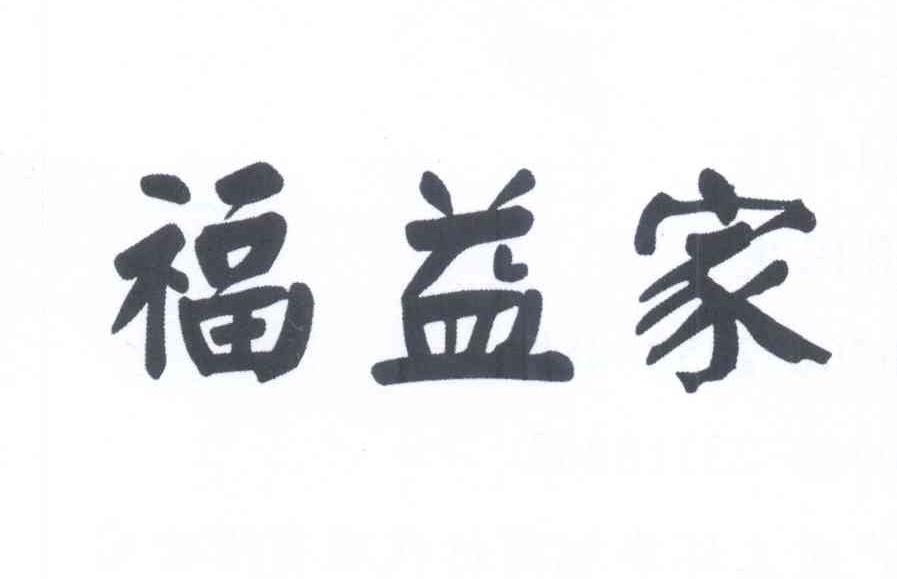 福益家